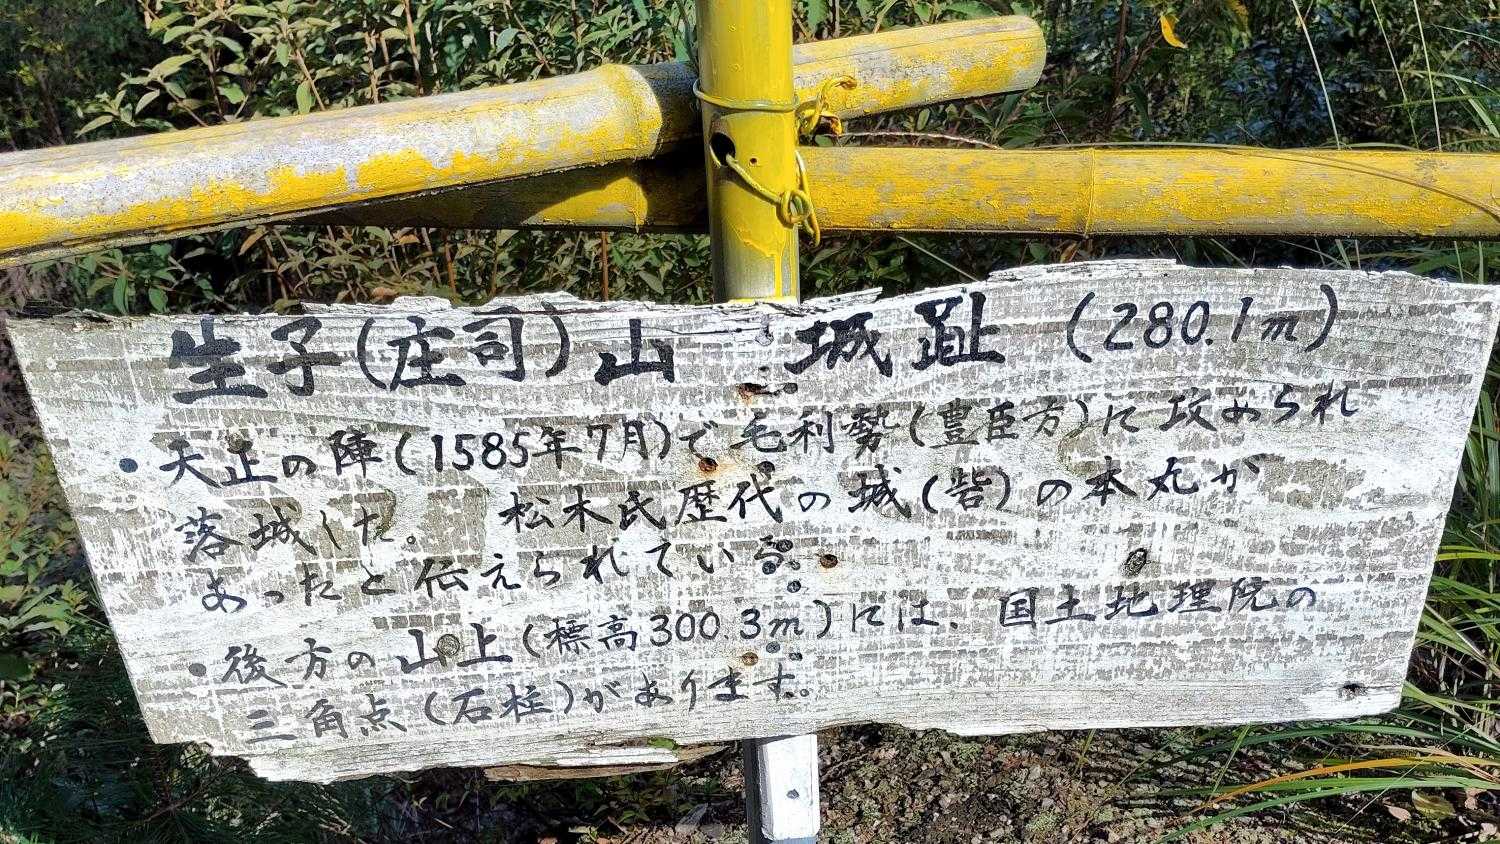 生子(庄司)山 城趾 (280.1m)
・天正の陣(1585年7月)で毛利勢(豊臣方)に攻められ
落城した。 松木氏歴代の城(砦)の本丸が
あったと伝えられている。
・後方の山上(標高300.3m)には、国土地理院の
三角点(石柱)があります。